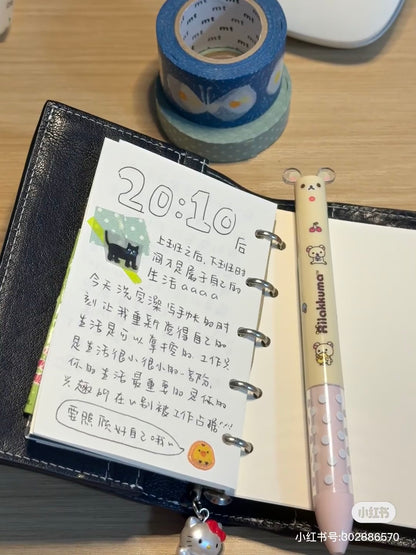 mt
mt
20:10
后
上班之后,下班时
间不是属于自己的
生活aaaa
今天洗完澡写手帐的时
刻让我重新觉得自己的
生活是可以掌控的.工作只
是生活很小很小的一部份,
你的生活最重要的是你的
兴趣所在、别被工作占据
要照顾好自己哦
Rilakkuma
小红书
小红书号:302886570